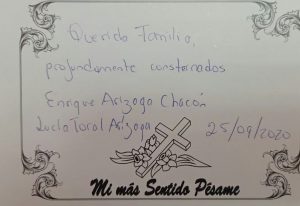 Querida Familia,
profundamente consternados
Enrique Arizaga Chacón
Lucía Toral Arízaga
25/09/2020
Mi más Sentido Pésame